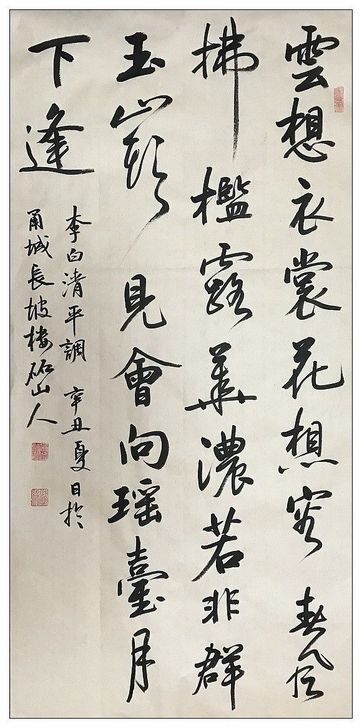 雲想衣裳花想容春風
拂檻露華濃若非群
玉山頭見會向瑶臺月
下逢
李白清平調 辛丑夏日於
甬城長坡樓砳山人